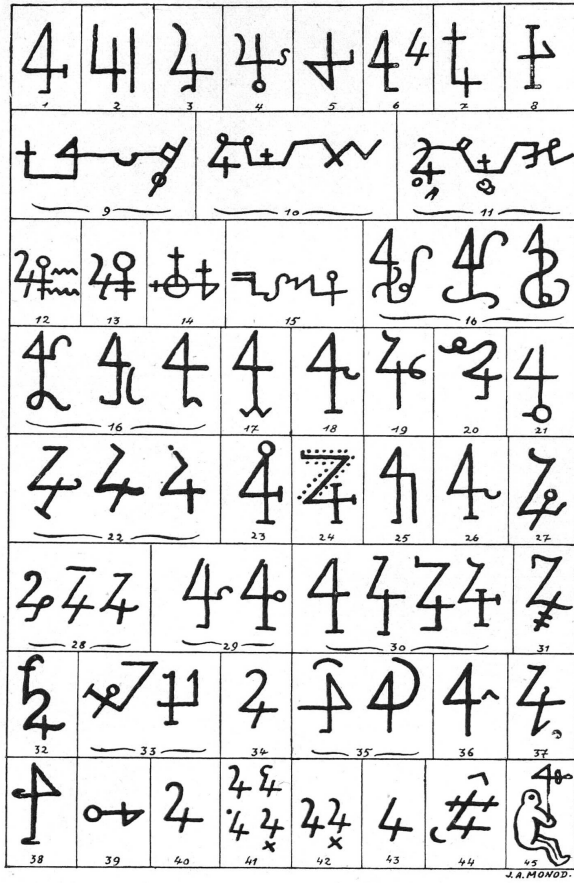 1 2 3 4 5 6 7 8
9 10 11
12 13 14 15 16
16 17 18 19 20 21
22 23 24 25 26 27
28 29 30 31
32 33 34 35 36 37
38 39 40 41 42 43 44 45
J.A. MONOD.